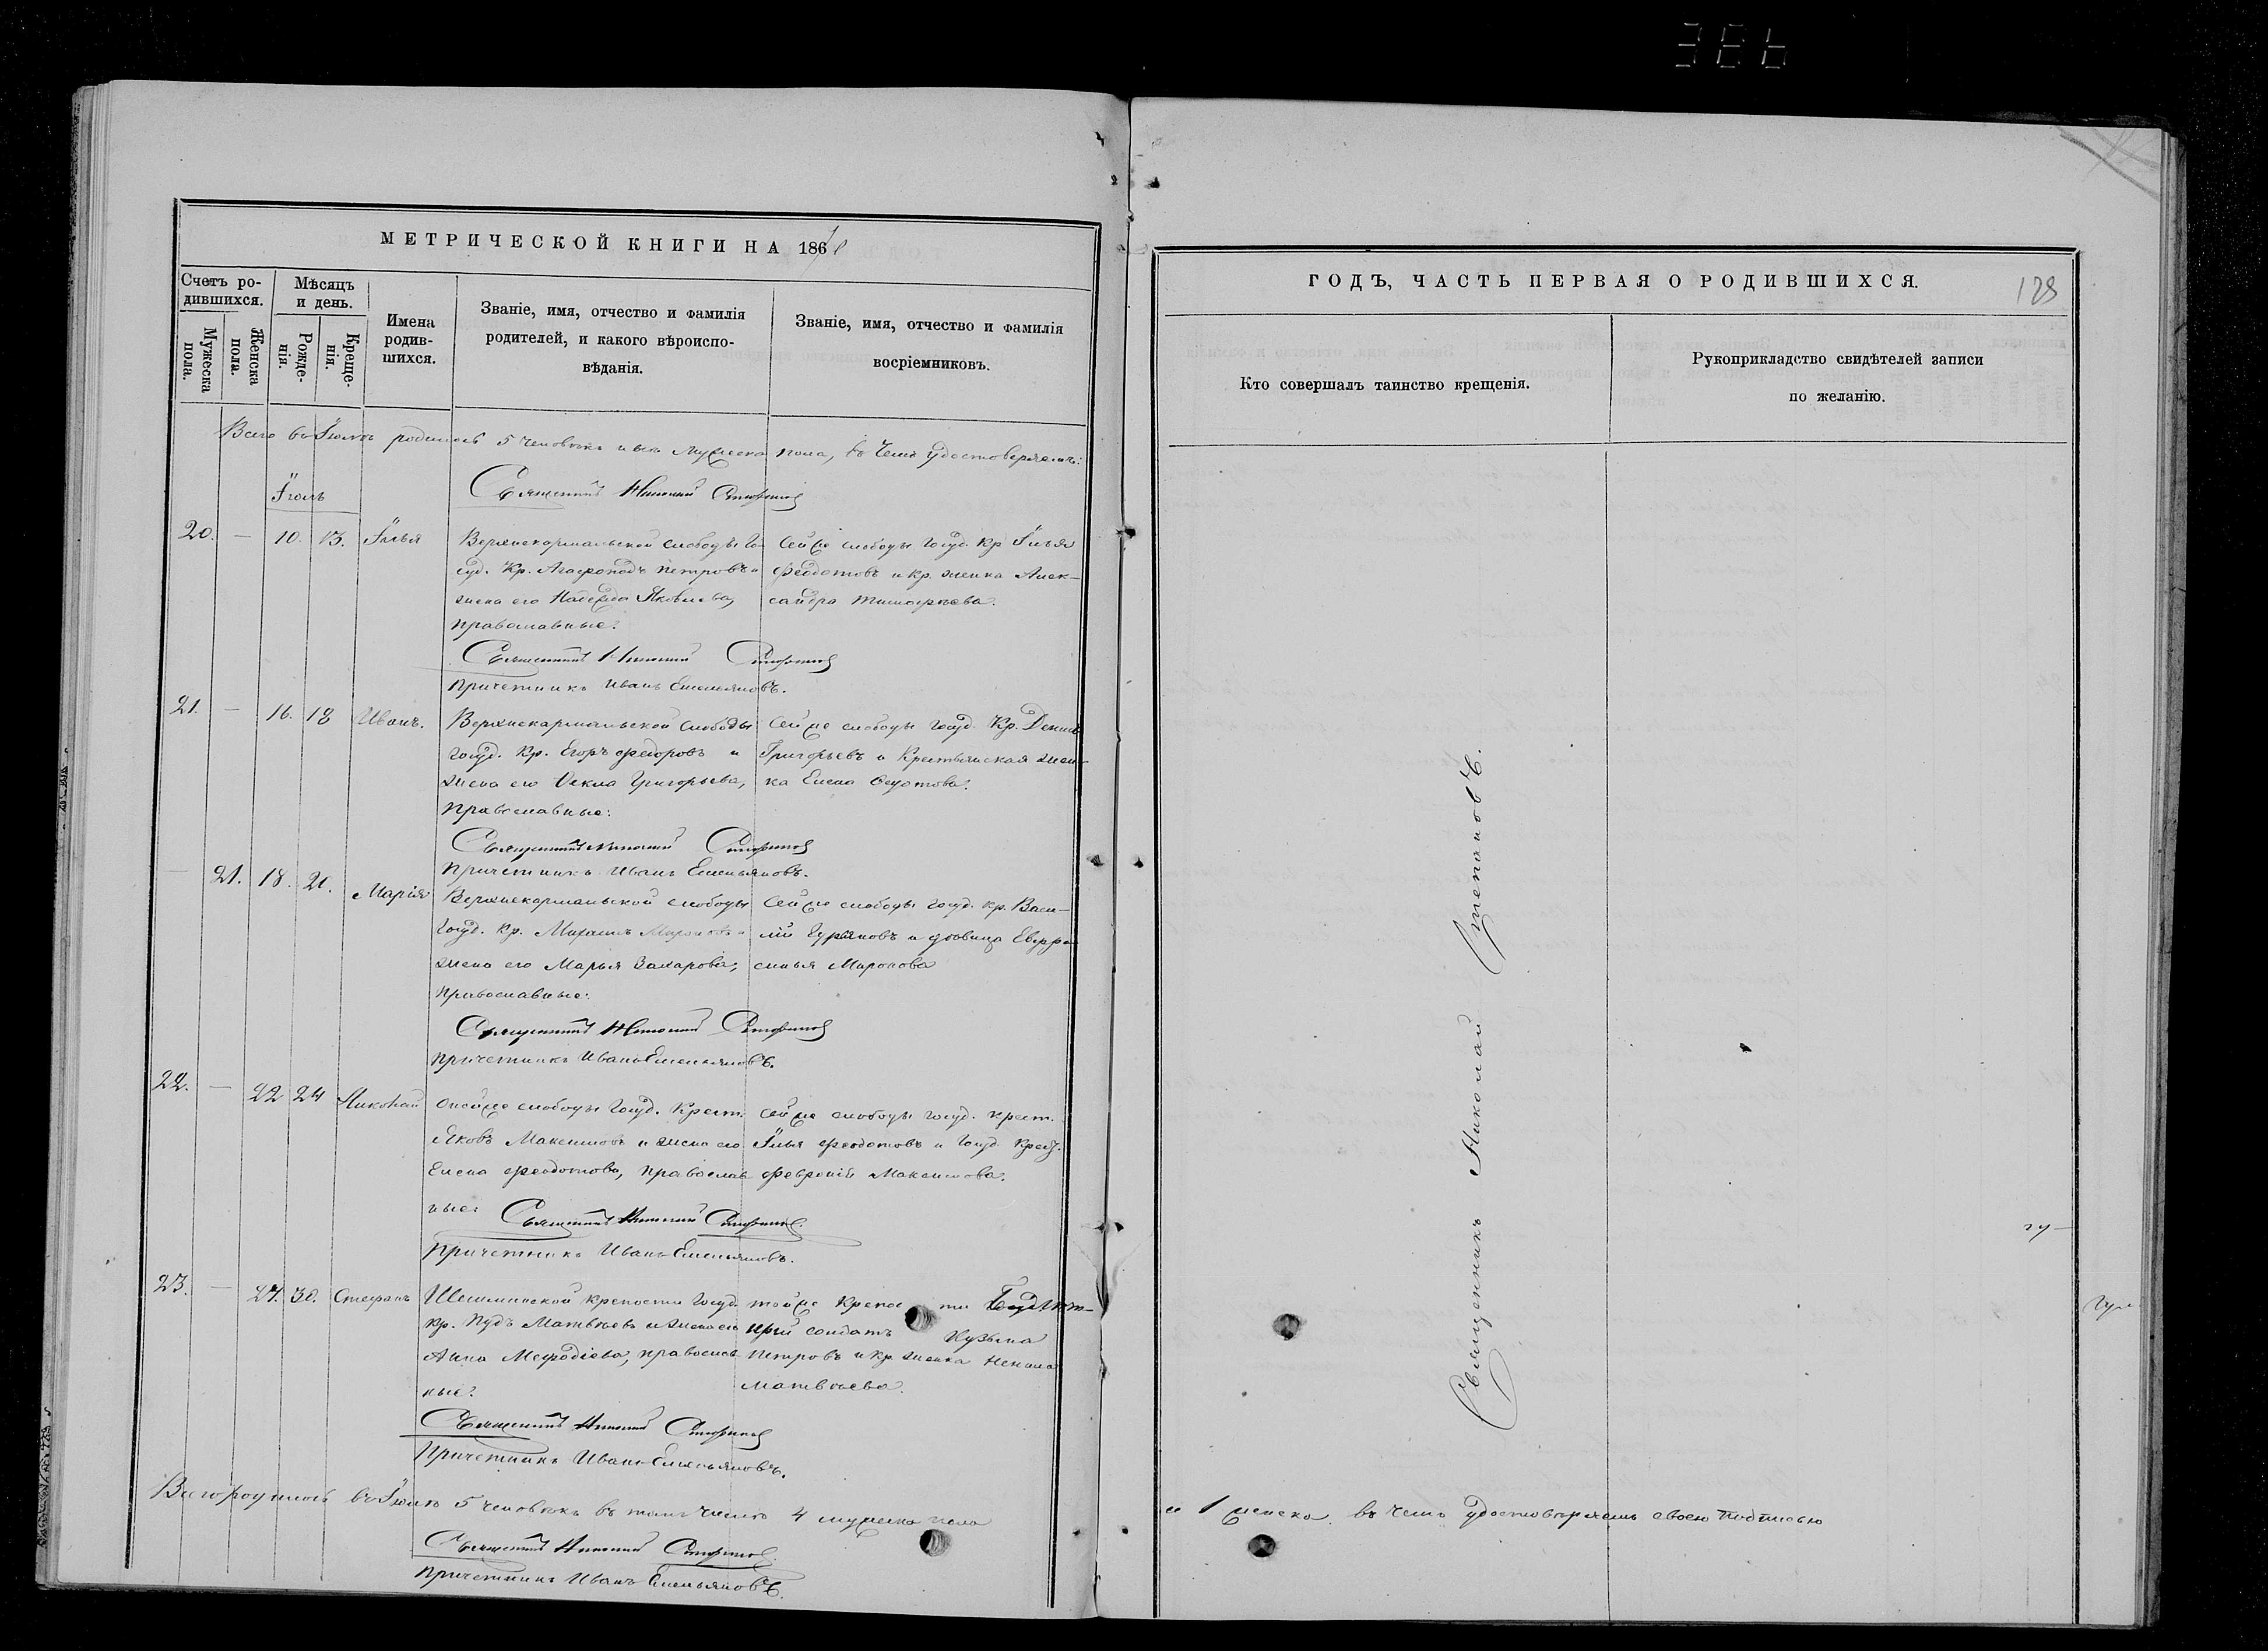 МЕТРИЧЕСКОЙ КНИГИ НА 186
Счетъ ро-
дившихся.
Мужеска
пола.
Женска
пола.
Мѣсяцъ
и день.
Рожде-
нія.
Креще-
нія.
Имена
родив-
шихся.
Званіе, имя, отчество и фамилія
родителей, и какого вѣроиспо-
вѣданія.
Званіе, имя, отчество и фамилія
воспріемниковъ.
Всего въ родилось 5 человѣкъ мужеска пола, въ чемъ удостовѣряемъ:
Іюль
Священникъ Николай
20. — 10. 13. Илья
Верхнекармальской слободы Го-
суд. Кр. Агафоподъ Петровъ и
жена его Надежда Яковлева,
православные:
Сей же слободы Госуд. Кр. Илья
Федотовъ и кр. женка Алек-
сандра Тимофѣева.
Священникъ Николай
Причетникъ Иванъ Емельяновъ.
21. — 16. 18 Иванъ.
Верхнекармальской слободы
Госуд. Кр. Егоръ Федоровъ и
жена его Григорьева,
православные:
Сей же слободы Госуд. Кр.
Григорьевъ и Крестьянская жен-
ка Елена Федотова.
Священникъ Николай
Причетникъ Иванъ Емельяновъ.
— 21. 18. 20. Марія
Верхнекармальской слободы
Госуд. Кр. Михаилъ Мироновъ и
жена его Марья Захарова,
православные:
Сей же слободы Госуд. Кр. Васи-
лій Гурьяновъ и вдовица Евфро-
синья Миронова
Священникъ Николай
Причетникъ Иванъ Емельяновъ.
22. — 22 24 Николай
слободы Госуд. Крест.
Яковъ Максимовъ и жена его
Елена Феодотова, православ
ные:
Сей же слободы Госуд. крест.
Илья Феодотовъ и Госуд. Крест.
Февронія Максимова.
Священникъ Николай
Причетникъ Иванъ Емельяновъ.
23. — 27. 30. Стефанъ
Шешминской крепости Госуд.
кр. Пудъ Матвѣевъ и жена его
Анна Мефодіева, православ
ные:
той же крепости
солдатъ Кузьма
Петровъ и кр. женка
Матвѣева.
Священникъ Николай
Причетникъ Иванъ Емельяновъ.
Всего родилось въ Іюлѣ 5 человѣкъ въ томъ числѣ 4 мужеска пола
Священникъ Николай
Причетникъ Иванъ Емельяновъ.
ГОДЪ, ЧАСТЬ ПЕРВАЯ О РОДИВШИХСЯ.
Кто совершалъ таинство крещенія.
Рукоприкладство свидѣтелей записи
по желанію.
Священникъ Николай
и 1 женска. въ чемъ удостовѣряемъ своею подписью